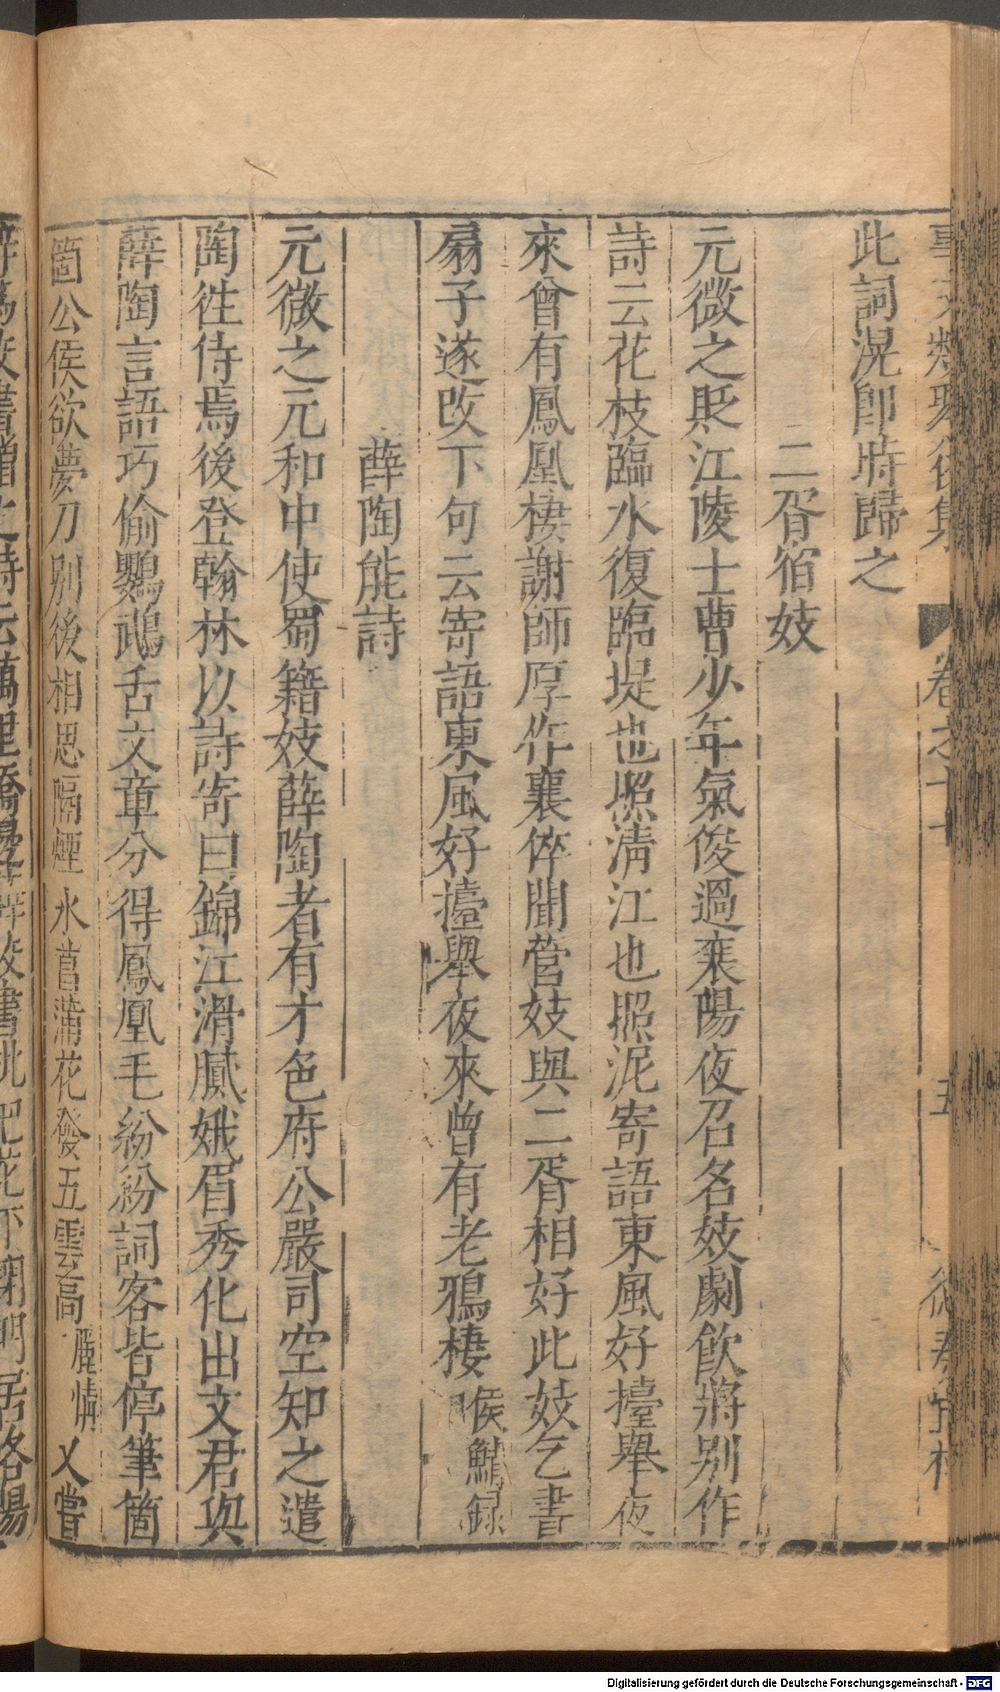 事文類聚後集 卷之十七 五
此詞滉即時歸之
二胥宿妓
元微之貶江陵士曹少年氣俊過襄陽夜召名妓劇飲將别作
詩云花枝臨水復臨堤也照淸江也照泥寄語東風好擡舉夜
來曾有鳳凰棲謝師厚作襄倅聞營妓與二胥相好此妓乞書
扇子遂改下句云寄語東風好擡舉夜來曾有老鴉棲 侯鯖録
薛陶能詩
元微之元和中使蜀籍妓薛陶者有才色府公嚴司空知之遣
陶徃侍焉後登翰林以詩寄曰錦江滑膩娥眉秀化出文君與
薛陶言語巧偷鸚鵡舌文章分得鳳凰毛紛紛詞客皆停筆箇
箇公侯欲夢刀别後相思隔煙水菖蒲花發五雲高 麗情 乂嘗
Digitalisierung gefördert durch die Deutsche Forschungsgemeinschaft - DFG